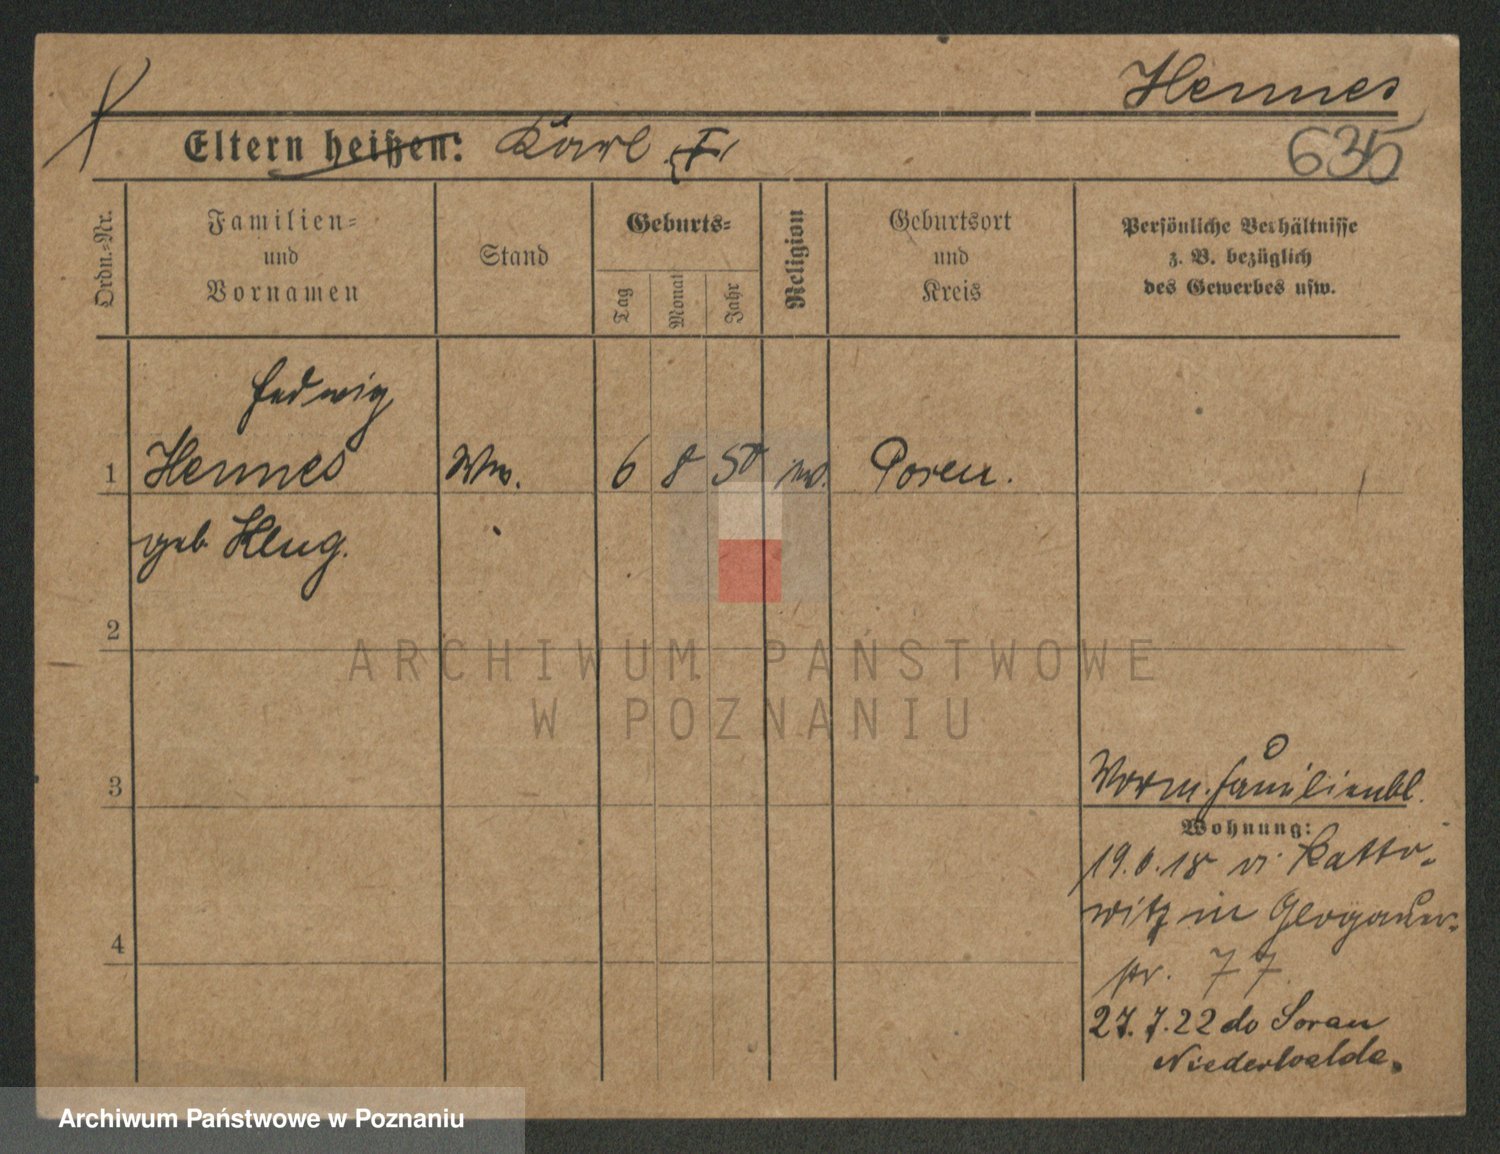 Hennes
Eltern heißen: Karl I
635
Ordn.-Nr.
Familien-
und
Vornamen
Stand
Geburts-
Tag
Monat
Jahr
Religion
Geburtsort
und
Kreis
Persönliche Verhältnisse
z. B. bezüglich
des Gewerbes usw.
Hedwig
1 Hennes Ww. 6 8 50 Posen.
geb Klug.
2
ARCHIWUM PAŃSTWOWE
W POZNANIU
3
Vorm. Familienbl.
Wohnung:
19.6.18 v. Katto-
witz in Glogauer-
4
str. 77
27.7.22 do Sorau
Niederwalde.
Archiwum Państwowe w Poznaniu